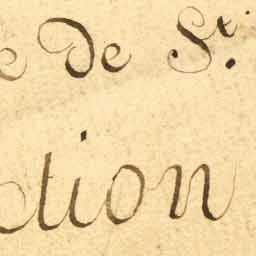 e de St.
ction